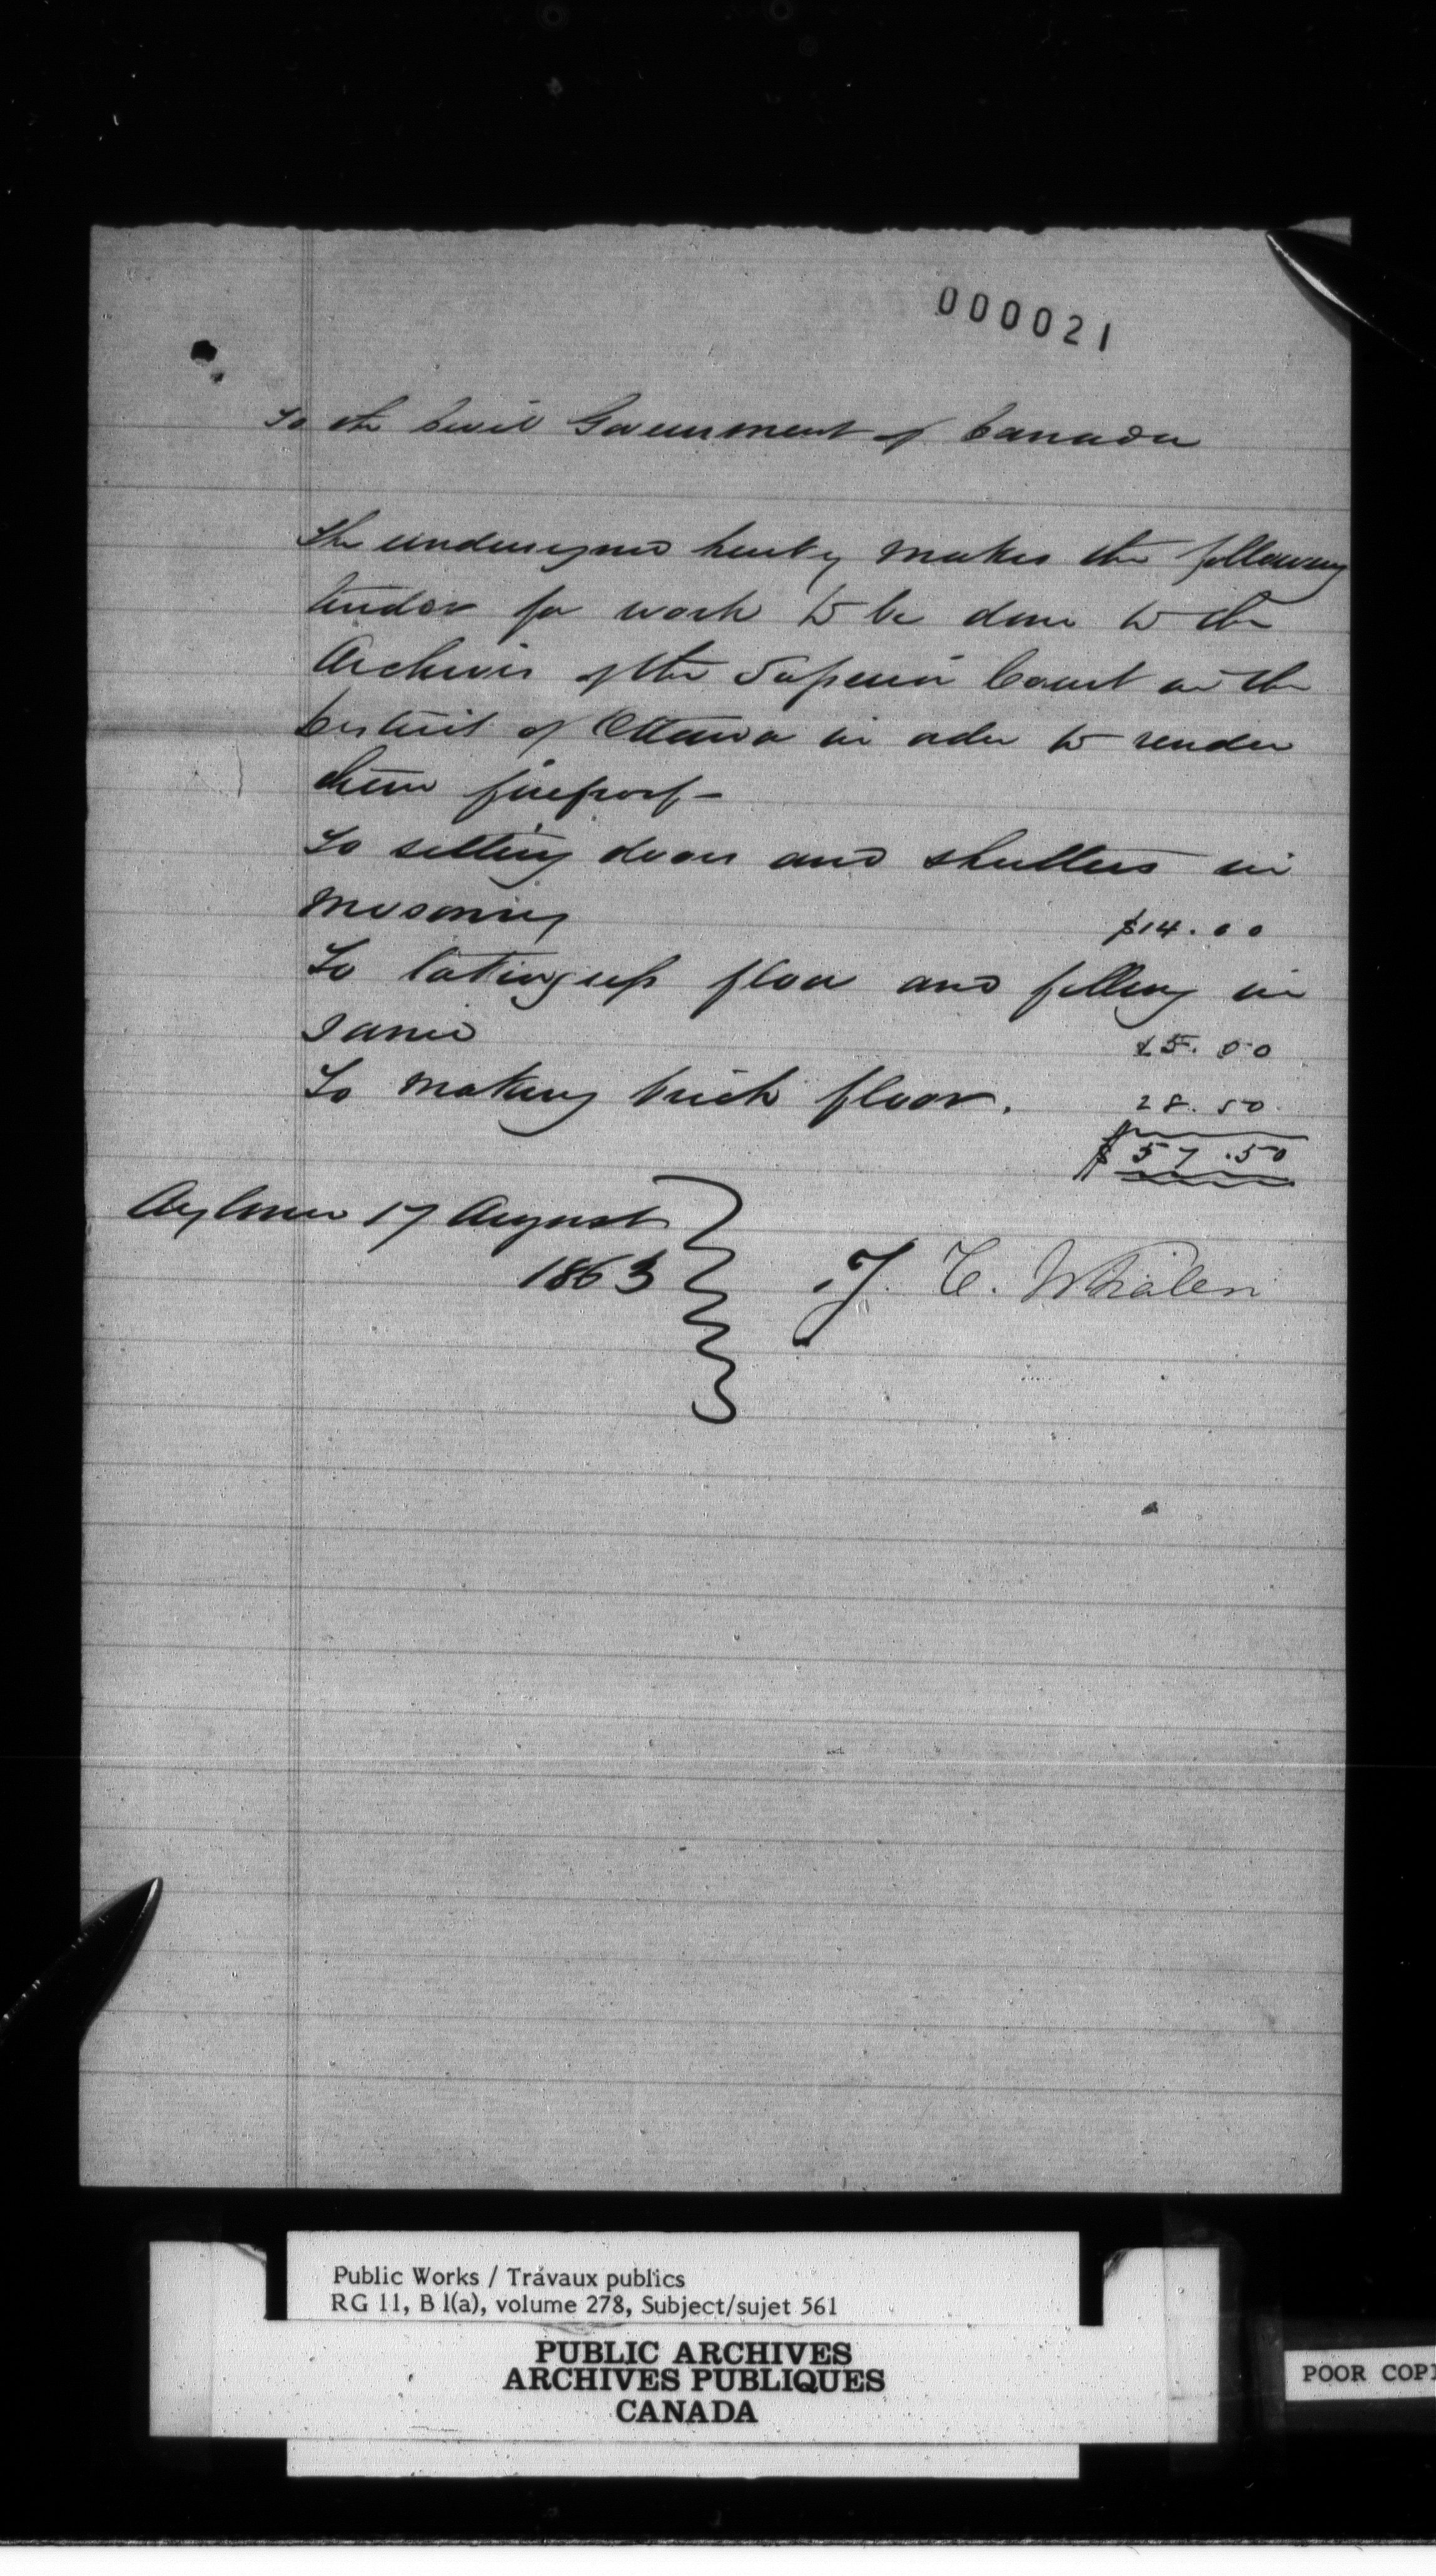 000021
To the Civil Government of Canada
The undersigned hereby makes the following
tender for work to be done to the
Archives of the Superior Court in the
District of Ottawa in order to render
them fireproof -
To setting doors and shutters in
masonry $14.00
To taking up floor and filling in
same 15.00
To making brick floor. 28.50
$57.50
Aylmer 17 August
1863
T. C. Whalen
Public Works / Travaux publics
RG 11, B 1(a), volume 278, Subject/sujet 561
PUBLIC ARCHIVES
ARCHIVES PUBLIQUES
CANADA
POOR COPI